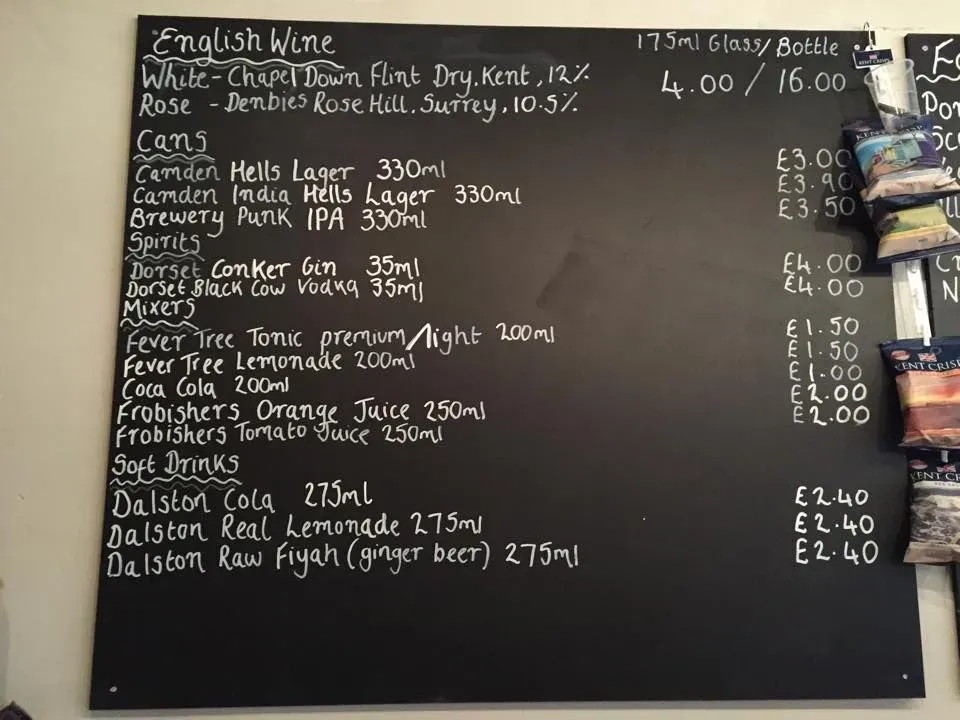 English Wine 175ml Glass/Bottle
White - Chapel Down Flint Dry, Kent, 12% 4.00 / 16.00
Rose - Denbies Rose Hill. Surrey, 10.5%
Cans
Camden Hells Lager 330ml £3.00
Camden India Hells Lager 330ml £3.90
Brewery Punk IPA 330ml £3.50
Spirits
Dorset Conker Gin 35ml £4.00
Dorset Black Cow Vodka 35ml £4.00
Mixers
Fever Tree Tonic premium/light 200ml £1.50
Fever Tree Lemonade 200ml £1.50
Coca Cola 200ml £1.00
Frobishers Orange Juice 250ml £2.00
Frobishers Tomato Juice 250ml £2.00
Soft Drinks
Dalston Cola 275ml £2.40
Dalston Real Lemonade 275ml £2.40
Dalston Raw Fiyah (ginger beer) 275ml £2.40
KENT CRISPS
KENT CRISP
KENT CRISP
KENT CR